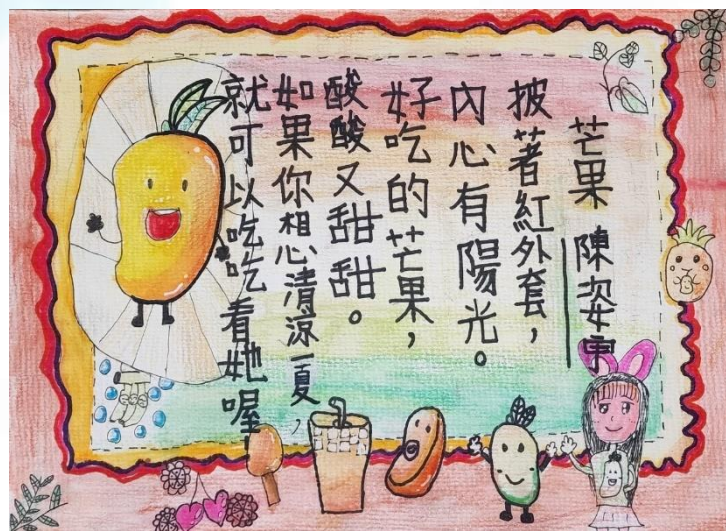 芒果 陳姿
披著紅外套，
內心有陽光。
好吃的芒果，
酸酸又甜甜。
如果你想清涼一夏，
就可以吃吃看她喔